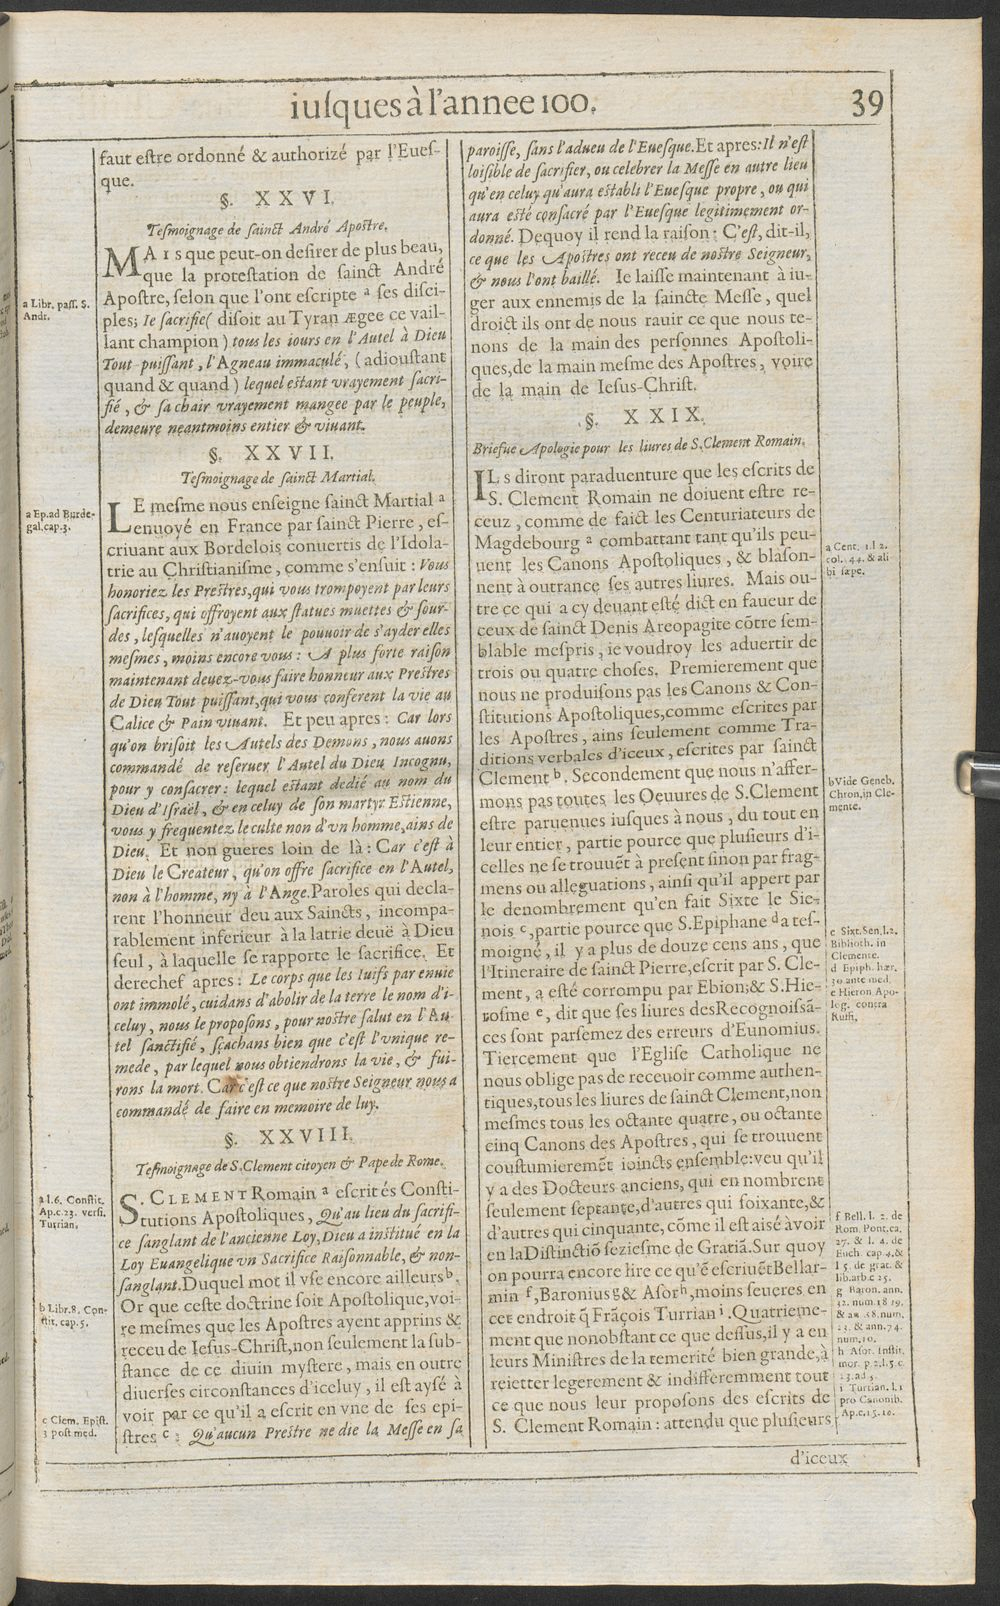 iusques à l'annee 100.
39
faut estre ordonné & authorizé par l'Eues-
que.
§. XXVI.
Tesmoignage de sainct André Apostre.
MAIs que peut-on desirer de plus beau,
que la protestation de sainct André
Apostre, selon que l'ont escripte a ses disci-
ples; Ie sacrifie ( disoit au Tyran Ægee ce vail-
lant champion ) tous les iours en l'Autel à Dieu
Tout-puissant, l'Agneau immaculé, ( adioustant
quand & quand ) lequel estant vrayement sacri-
fié, & sa chair vrayement mangee par le peuple,
demeure neantmoins entier & viuant.
§. XXVII.
Tesmoignage de sainct Martial.
LE mesme nous enseigne sainct Martial a
enuoyé en France par sainct Pierre, es-
criuant aux Bordelois conuertis de l'Idola-
trie au Christianisme, comme s'ensuit : Vous
honoriez les Prestres, qui vous trompoyent par leurs
sacrifices, qui offroyent aux statues muettes & sour-
des, lesquelles n'auoyent le pouuoir de s'ayder elles
mesmes, moins encore vous : A plus forte raison
maintenant deuez-vous faire honneur aux Prestres
de Dieu Tout puissant, qui vous conferent la vie au
Calice & Pain viuant. Et peu apres : Car lors
qu'on brisoit les Autels des Demons, nous auons
commandé de reseruer l'Autel du Dieu Incognu,
pour y consacrer : lequel estant dedié au nom du
Dieu d'Israël, & en celuy de son martyr Estienne,
vous y frequentez le culte non d'vn homme, ains de
Dieu. Et non gueres loin de là : Car c'est à
Dieu le Createur, qu'on offre sacrifice en l'Autel,
non à l'homme, ny à l'Ange. Paroles qui decla-
rent l'honneur deu aux Saincts, incompa-
rablement inferieur à la latrie deuë à Dieu
seul, à laquelle se rapporte le sacrifice. Et
derechef apres : Le corps que les Iuifs par enuie
ont immolé, cuidans d'abolir de la terre le nom d'i-
celuy, nous le proposons, pour nostre salut en l'Au-
tel sanctifié, sçachans bien que c'est l'vnique re-
mede, par lequel nous obtiendrons la vie, & fui-
rons la mort. Car c'est ce que nostre Seigneur nous a
commandé de faire en memoire de luy.
§. XXVIII.
Tesmoignage de S. Clement citoyen & Pape de Rome.
S. CLEMENT Romain a escrit és Consti-
tutions Apostoliques, Qu'au lieu du sacrifi-
ce sanglant de l'ancienne Loy, Dieu a institué en la
Loy Euangelique vn Sacrifice Raisonnable, & non-
sanglant. Duquel mot il vse encore ailleurs b.
Or que ceste doctrine soit Apostolique, voi-
re mesmes que les Apostres ayent apprins &
receu de Iesus-Christ, non seulement la sub-
stance de ce diuin mystere, mais en outre
diuerses circonstances d'iceluy, il est aysé à
voir par ce qu'il a escrit en vne de ses epi-
stres c : Qu'aucun Prestre ne die la Messe en sa
a Libr. pass. S.
Andr.
a Ep. ad Burde-
gal. cap. 3.
a l. 6. Constit.
Ap. c. 23. vers.
Turrian.
b Libr. 8. Con-
stit. cap. 5.
c Clem. Epist.
3 post med.
paroisse, sans l'adueu de l'Euesque. Et apres: Il n'est
loisible de sacrifier, ou celebrer la Messe en autre lieu
qu'en celuy qu'aura establi l'Euesque propre, ou qui
aura esté consacré par l'Euesque legitimement or-
donné. Dequoy il rend la raison : C'est, dit-il,
ce que les Apostres ont receu de nostre Seigneur,
& nous l'ont baillé. Ie laisse maintenant à iu-
ger aux ennemis de la saincte Messe, quel
droict ils ont de nous rauir ce que nous te-
nons de la main des personnes Apostoli-
ques, de la main mesme des Apostres, voire
de la main de Iesus-Christ.
§. XXIX.
Briefue Apologie pour les liures de S. Clement Romain.
ILs diront paraduenture que les escrits de
S. Clement Romain ne doiuent estre re-
ceuz, comme de faict les Centuriateurs de
Magdebourg a combattant tant qu'ils peu-
uent les Canons Apostoliques, & blason-
nent à outrance ses autres liures. Mais ou-
tre ce qui a cy deuant esté dict en faueur de
ceux de sainct Denis Areopagite cõtre sem-
blable mespris, ie voudroy les aduertir de
trois ou quatre choses. Premierement que
nous ne produisons pas les Canons & Con-
stitutions Apostoliques, comme escrites par
les Apostres, ains seulement comme Tra-
ditions verbales d'iceux, escrites par sainct
Clement b. Secondement que nous n'affer-
mons pas toutes les Oeuures de S. Clement
estre paruenues iusques à nous, du tout en
leur entier, partie pource que plusieurs d'i-
celles ne se trouuẽt à present sinon par frag-
mens ou alleguations, ainsi qu'il appert par
le denombrement qu'en fait Sixte le Sie-
nois c, partie pource que S. Epiphane d a tes-
moigné, il y a plus de douze cens ans, que
l'Itineraire de sainct Pierre, escrit par S. Cle-
ment, a esté corrompu par Ebion; & S. Hie-
rosme e, dit que ses liures des Recognoissã-
ces sont parsemez des erreurs d'Eunomius.
Tiercement que l'Eglise Catholique ne
nous oblige pas de receuoir comme authen-
tiques, tous les liures de sainct Clement, non
mesmes tous les octante quatre, ou octante
cinq Canons des Apostres, qui se trouuent
coustumieremẽt ioincts ensemble: veu qu'il
y a des Docteurs anciens, qui en nombrent
seulement septante, d'autres qui soixante, &
d'autres qui cinquante, cõme il est aisé à voir
en la Distinctiõ seziesme de Gratiã. Sur quoy
on pourra encore lire ce qu'ẽ escriuẽt Bellar-
min f, Baronius g & Asor h, moins seueres en
cet endroit q̃ Frãçois Turrian i. Quatrieme-
ment que nonobstant ce que dessus, il y a en
leurs Ministres de la temerité bien grande, à
reietter legerement & indifferemment tout
ce que nous leur proposons des escrits de
S. Clement Romain : attendu que plusieurs
a Cent. 1. l 2.
col. 44. & ali
bi sæpe.
b Vide Geneb.
Chron. in Cle-
mente.
c Sixt. Sen. l. 2.
Biblioth. in
Clemente.
d Epiph. hær.
30. ante med.
e Hieron. Apo-
log. contra
Ruffi.
f Bell. l. 2. de
Rom. Pont. ca.
27. & l. 4. de
Euch. cap. 4. &
l 5. de grat. &
lib. arb. c 25.
g Baron. ann.
32. num. 18 19.
& an. 58. num.
23. & ann. 74.
num. 10.
h Asor. Instit.
mor. p. 2. l. 5. c.
13. ad 5.
i Turrian. l. 1
pro Canonib.
Ap. c. 15. 10.
d'iceux